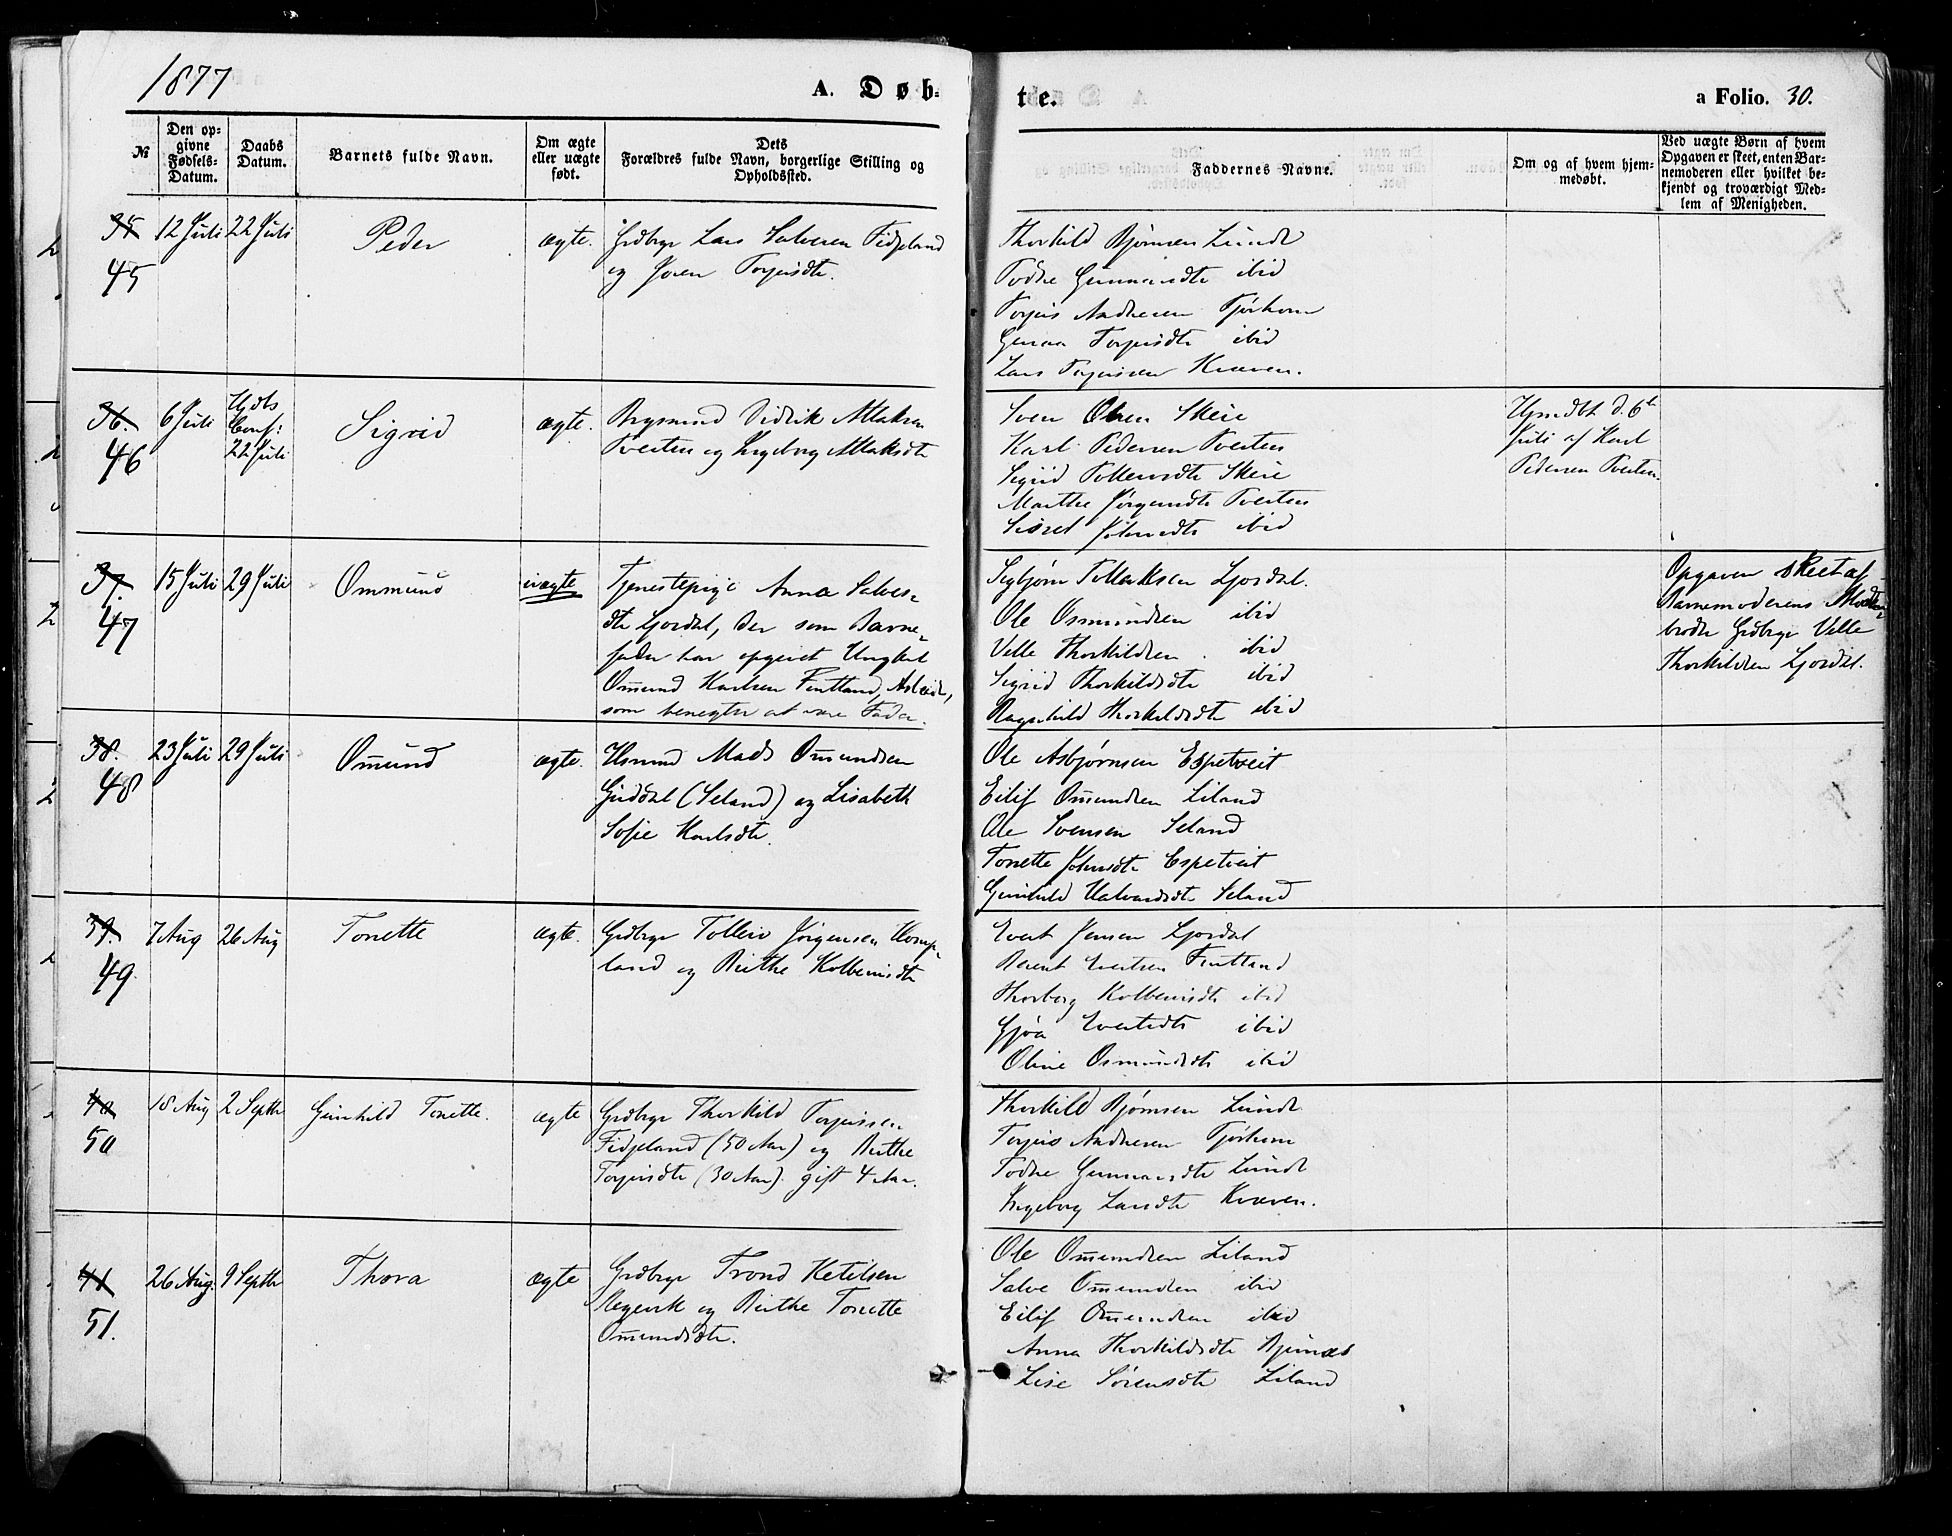 1877
A. Døb-
te.
a Folio. 30.
№
Den op-
givne
Fødsels-
Datum.
Daabs
Datum.
Barnets fulde Navn.
Om ægte
eller uægte
født.
Dets
Forældres fulde Navn, borgerlige Stilling og
Opholdssted.
Faddernes Navne.
Om og af hvem hjem-
medøbt.
Ved uægte Børn af hvem
Opgaven er skeet, enten Bar-
nemoderen eller hvilket be-
kjendt og troværdigt Med-
lem af Menigheden.
35 12 Juli 22 Juli Peder ægte. Grdbrgr Lars Salvesen Fidjeland
45 og Joren Torjusdtr.
Thorkild Bjørnsen Lunde
Todne Gunnarsdtr ibid
Torjus Andresen Tjørhom
Torjusdtr ibid
Lars Torjussen Kvæven.
36. 6 Juli Hjdbs Sigrid ægte. Didrik Atlaksen
Conf:
46 22 Juli Tveiten og Ingeborg Atlaksdtr
Sven Olsen Skeie
Karl Pedersen Tveiten
Sigrid Tollevsdtr Skeie
Marthe Jørgensdtr Tveiten
Sissel Johnsdtr ibid
Hjmdbt d. 6te
Juli af Karl
Pedersen Tveiten.
37. 15 Juli 29 Juli Ommund uægte Tjenestepige Anna Salves-
47 dtr Ljosdal, der som Barne-
fader har opgivet Ungkarl
Omund Karlsen Fintland,
som benegter at være Fader.
Sigbjørn Tollaksen Ljosdal.
Ole Osmundsen ibid
Velle Thorkildsen ibid
Sigrid Thorkildsdtr ibid
Ragnhild Thorkildsdtr ibid
Opgaven skeet af
Barnemoderens
broder Grdbrgr Velle
Thorkildsen Ljosdal.
38. 23 Juli 29 Juli Omund ægte. Husmd Mads Omundsen
48 Guddal (Seland) og Lisabeth
Sofie Karlsdtr.
Ole Asbjørnsen Espetveit
Eilif Omundsen Liland
Ole Svensen Seland
Tonette Johnsdtr Espetveit
Gunhild Halvardsdtr Seland
39. 7 Aug 26 Aug Tonette ægte. Grdbrgr Tolleiv Jørgensen Homp-
49. land og Birthe Kolbeinsdtr
Evert Jensen Ljosdal
Berent Evertsen Fintland
Thorborg Kolbeinsdtr ibid
Gjøa Evertsdtr ibid
Oline Osmundsdtr ibid
40 18 Aug 2 Septbr Gunhild Tonette. ægte Grdbrgr Thorkild Torjussen
50 Fidjeland (50 Aar) og Birthe
Torjusdtr (30 Aar). gift 4 Aar.
Thorkild Bjørnsen Lunde
Torjus Andresen Tjørhom
Todne Gunnarsdtr Lunde
Ingeborg Larsdtr Kvæven.
41 26 Aug. 9 Septbr Thora ægte Grdbrgr Trond Ketilsen
51. Regevik og Birthe Tonette
Omundsdtr.
Ole Omundsen Liland
Salve Omundsen ibid
Eilif Omundsen ibid
Anna Thorkildsdtr Bjunæs
Lise Sørensdtr Liland